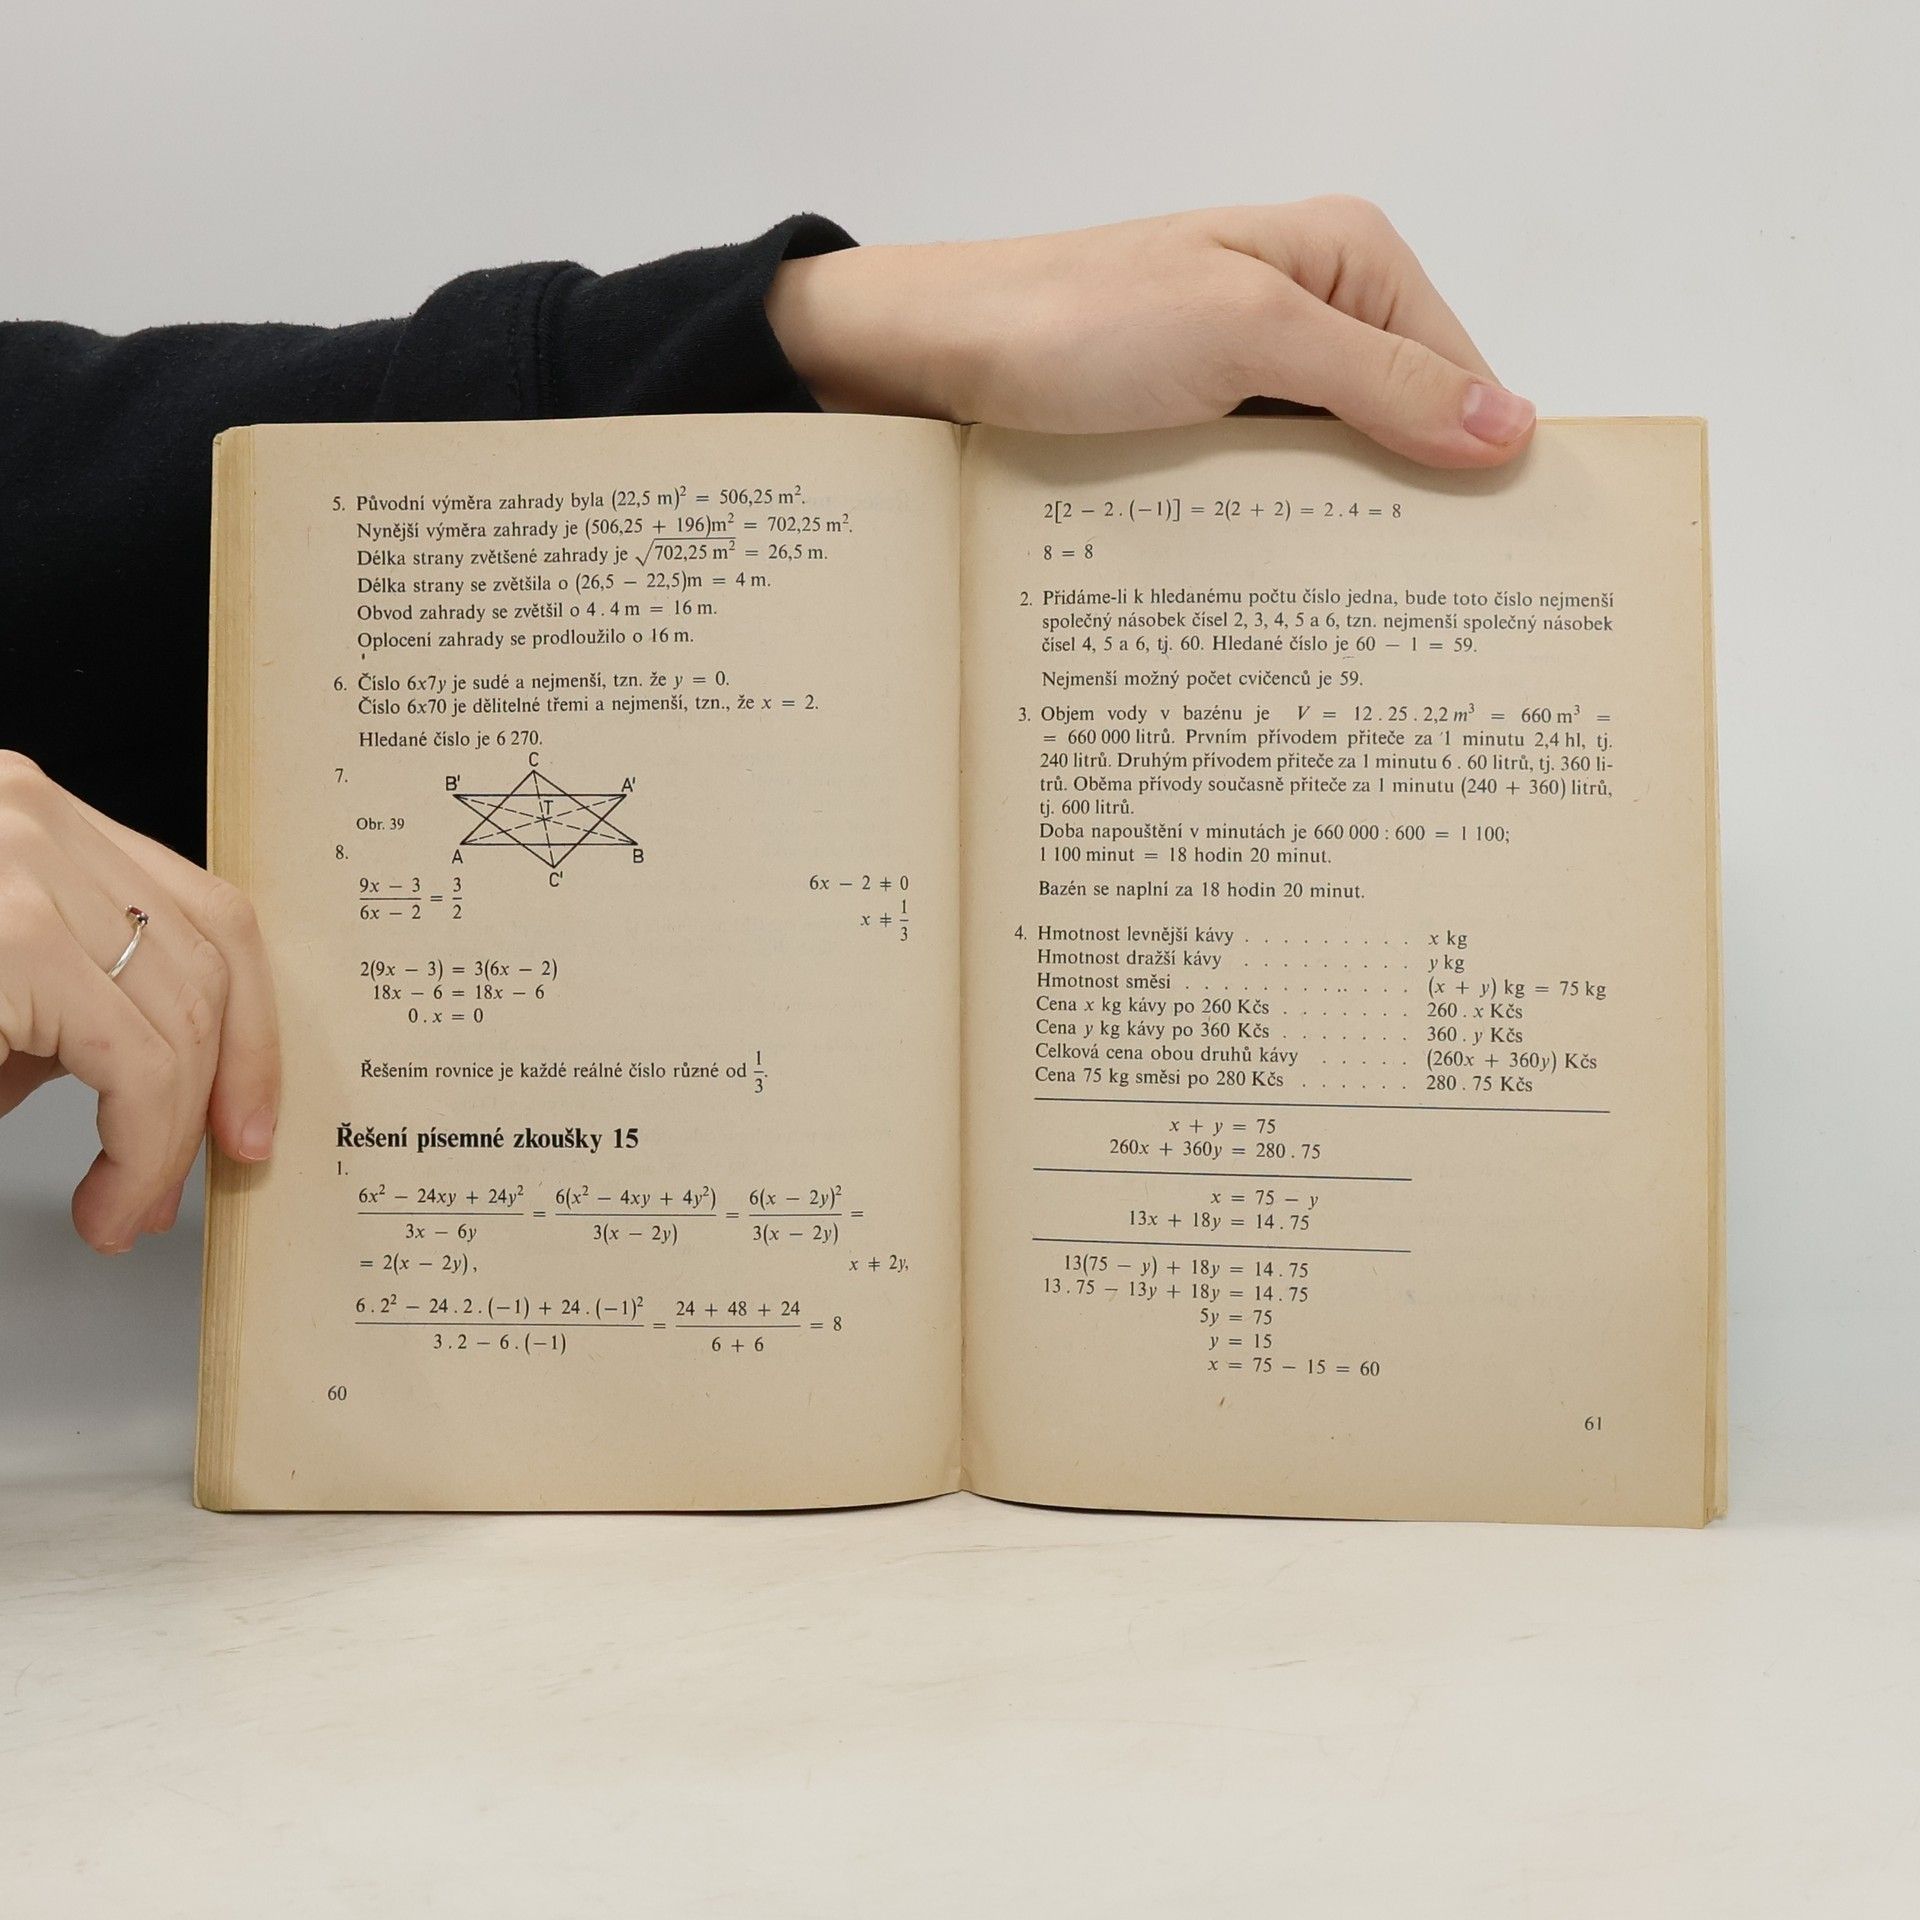 5. Původní výměra zahrady byla (22,5 m)² = 506,25 m².
Nynější výměra zahrady je (506,25 + 196)m² = 702,25 m².
Délka strany zvětšené zahrady je √702,25 m² = 26,5 m.
Délka strany se zvětšila o (26,5 − 22,5)m = 4 m.
Obvod zahrady se zvětšil o 4 . 4 m = 16 m.
Oplocení zahrady se prodloužilo o 16 m.
6. Číslo 6x7y je sudé a nejmenší, tzn. že y = 0.
Číslo 6x70 je dělitelné třemi a nejmenší, tzn., že x = 2.
Hledané číslo je 6 270.
7.
C
B' A'
T
Obr. 39
A B
C'
8.
(9x − 3)/(6x − 2) = 3/2 6x − 2 ≠ 0
x ≠ 1/3
2(9x − 3) = 3(6x − 2)
18x − 6 = 18x − 6
0 . x = 0
Řešením rovnice je každé reálné číslo různé od 1/3.
Řešení písemné zkoušky 15
1.
(6x² − 24xy + 24y²)/(3x − 6y) = 6(x² − 4xy + 4y²)/3(x − 2y) = 6(x − 2y)²/3(x − 2y) =
= 2(x − 2y), x ≠ 2y,
(6 . 2² − 24 . 2 . (−1) + 24 . (−1)²)/(3 . 2 − 6 . (−1)) = (24 + 48 + 24)/(6 + 6) = 8
60
2[2 − 2 . (−1)] = 2(2 + 2) = 2 . 4 = 8
8 = 8
2. Přidáme-li k hledanému počtu číslo jedna, bude toto číslo nejmenší
společný násobek čísel 2, 3, 4, 5 a 6, tzn. nejmenší společný násobek
čísel 4, 5 a 6, tj. 60. Hledané číslo je 60 − 1 = 59.
Nejmenší možný počet cvičenců je 59.
3. Objem vody v bazénu je V = 12 . 25 . 2,2 m³ = 660 m³ =
= 660 000 litrů. Prvním přívodem přiteče za 1 minutu 2,4 hl, tj.
240 litrů. Druhým přívodem přiteče za 1 minutu 6 . 60 litrů, tj. 360 li-
trů. Oběma přívody současně přiteče za 1 minutu (240 + 360) litrů,
tj. 600 litrů.
Doba napouštění v minutách je 660 000 : 600 = 1 100;
1 100 minut = 18 hodin 20 minut.
Bazén se naplní za 18 hodin 20 minut.
4. Hmotnost levnější kávy . . . . . . . . . x kg
Hmotnost dražší kávy . . . . . . . . . y kg
Hmotnost směsi . . . . . . . . . . . . (x + y) kg = 75 kg
Cena x kg kávy po 260 Kčs . . . . . . . 260 . x Kčs
Cena y kg kávy po 360 Kčs . . . . . . . 360 . y Kčs
Celková cena obou druhů kávy . . . . . (260x + 360y) Kčs
Cena 75 kg směsi po 280 Kčs . . . . . . 280 . 75 Kčs
x + y = 75
260x + 360y = 280 . 75
x = 75 − y
13x + 18y = 14 . 75
13(75 − y) + 18y = 14 . 75
13 . 75 − 13y + 18y = 14 . 75
5y = 75
y = 15
x = 75 − 15 = 60
61